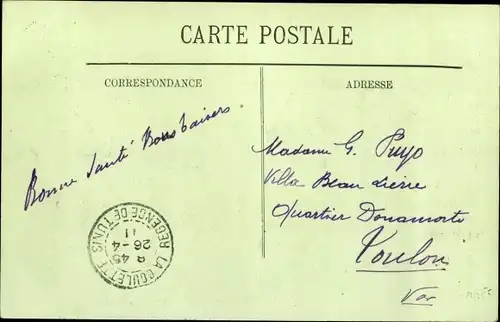 CARTE POSTALE
CORRESPONDANCE
ADRESSE
Bonne Santé Bons baisers.
Madame G. Puyo
Villa Beau
Quartier Donamorte
Toulon
Var
LA GOULETTE
REGENCE DE TUNIS
8 45
26-4
11